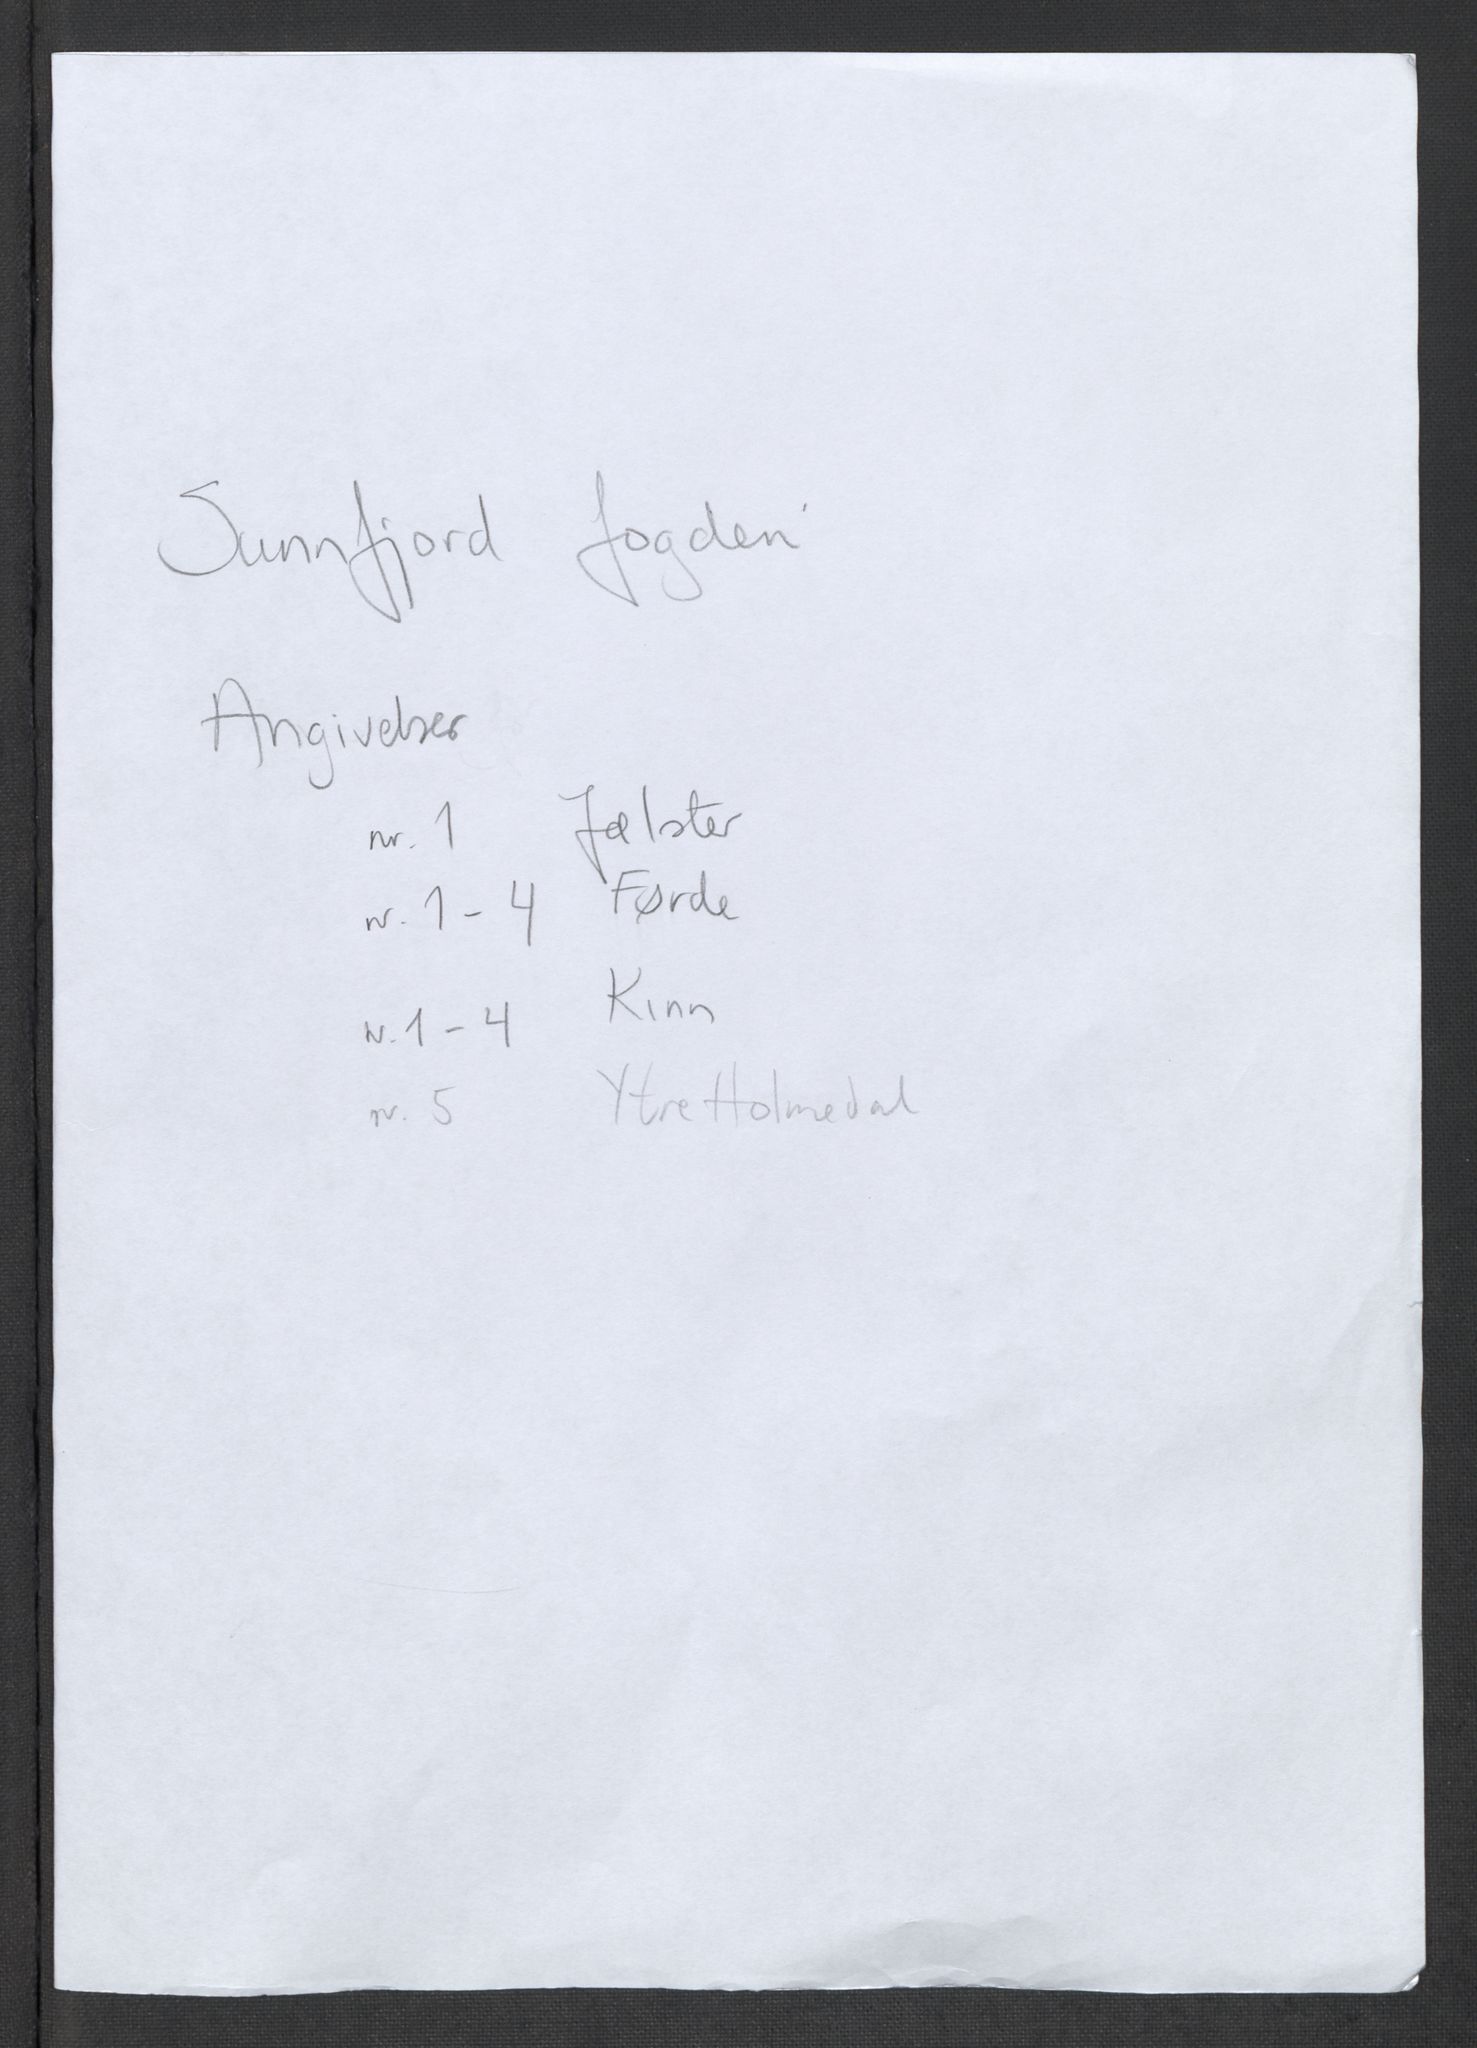 Sunnfjord fogderi
Angivelser
nr. 1 Jølster
nr. 1-4 Førde
nr. 1-4 Kinn
nr. 5 Ytre Holmedal